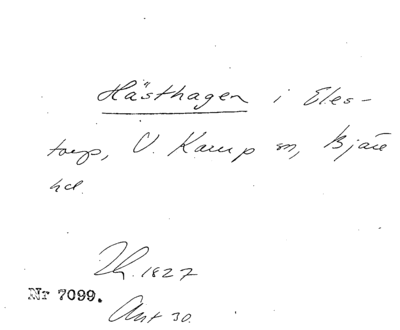 Hästhagen i Eles-
torp, V. Karup sn, Bjäre
hd.
Th. 1827
Nr 7099.
Avt 30.